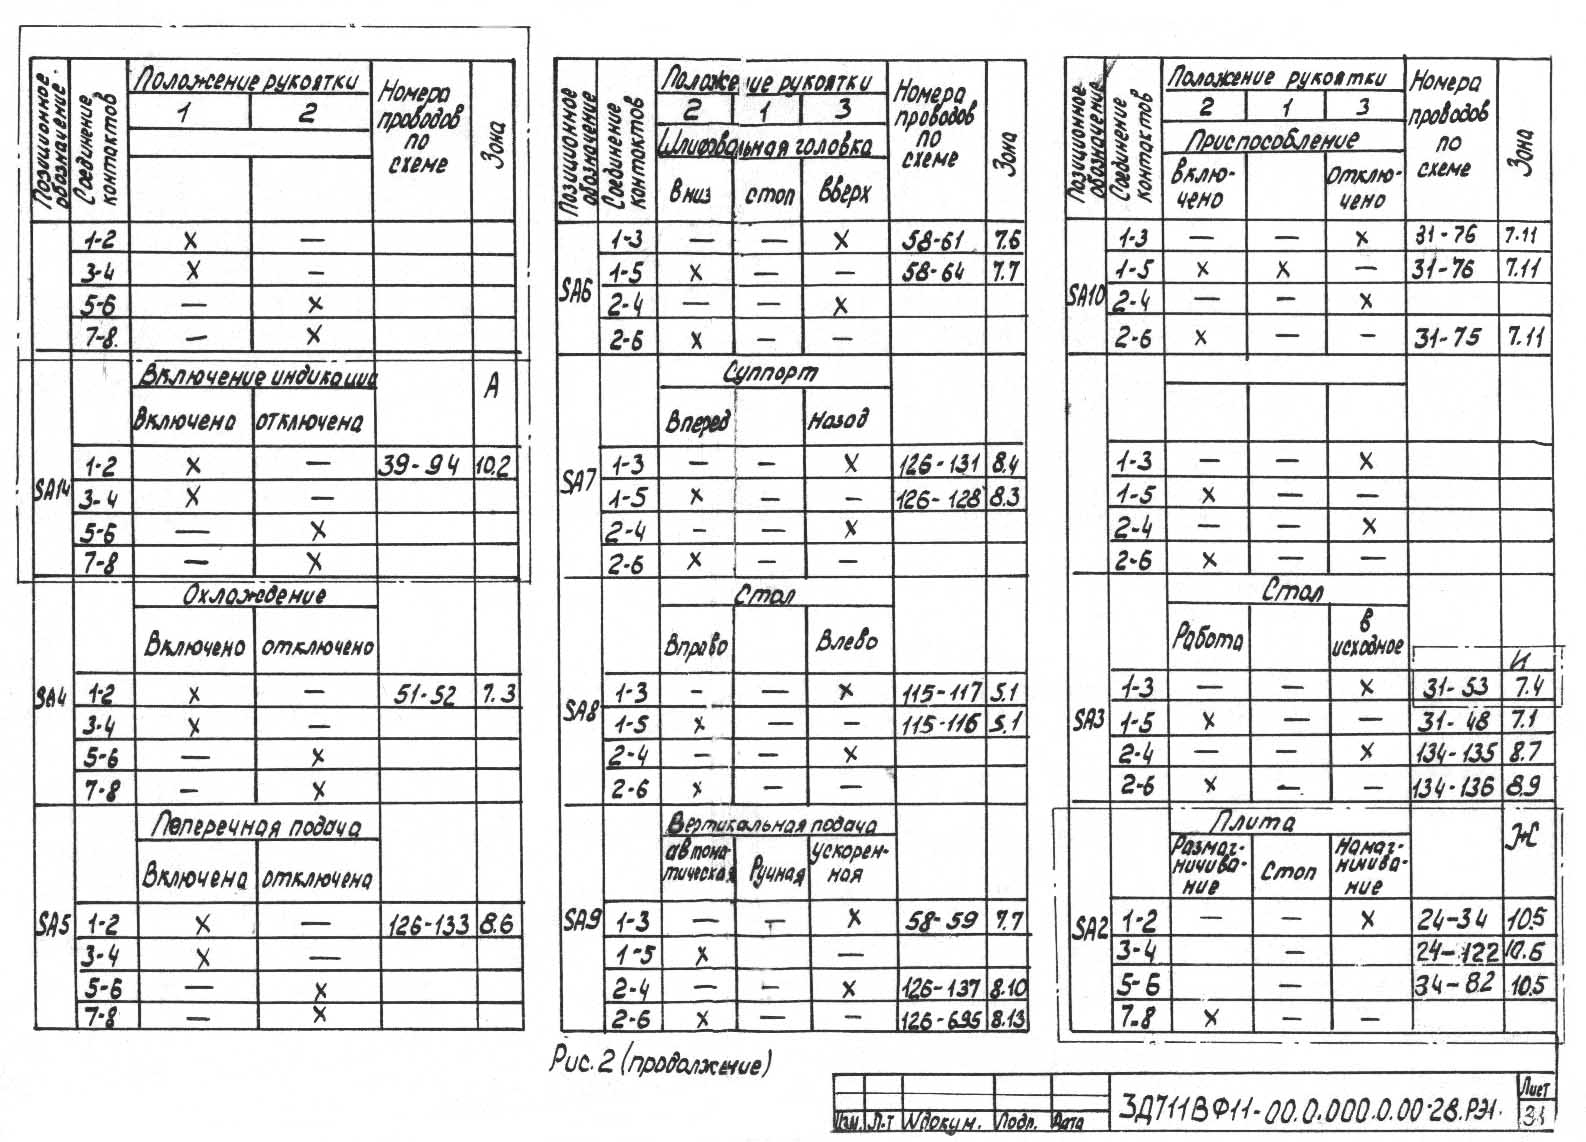 Позиционное обозначение. Соединение контактов Положение рукоятки Номера проводов по схеме Зона
1 2
1-2 × — 
3-4 × —
5-6 — ×
7-8. — ×
Включение индикации А
Включена отключена
SA14 1-2 × — 39-94 10.2
3-4 × —
5-6 — ×
7-8 — ×
Охлаждение
Включено отключено
SA4 1-2 × — 51-52 7.3
3-4 × —
5-6 — ×
7-8 — ×
Поперечная подача
Включена отключена
SA5 1-2 × — 126-133 8.6
3-4 × —
5-6 — ×
7-8 — ×
Позиционное обозначение Соединение контактов Положение рукоятки Номера проводов по схеме Зона
2 1 3
Шлифовальная головка
Вниз стоп Вверх
SA6 1-3 — — × 58-61 7.6
1-5 × — — 58-64 7.7
2-4 — — ×
2-6 × — —
Суппорт
Вперед Назад
SA7 1-3 — — × 126-131 8.4
1-5 × — — 126-128 8.3
2-4 — — ×
2-6 × — —
Стол
Вправо Влево
SA8 1-3 — — × 115-117 5.1
1-5 × — — 115-116 5.1
2-4 — — ×
2-6 × — —
Вертикальная подача
автома-тическая Ручная ускорен-ная
SA9 1-3 — — × 58-59 7.7
1-5 × — —
2-4 — — × 126-137 8.10
2-6 × — — 126-695 8.13
Позиционное обозначение Соединение контактов Положение рукоятки Номера проводов по схеме Зона
2 1 3
Приспособление
Включено Отключено
SA10 1-3 — — × 31-76 7.11
1-5 × × — 31-76 7.11
2-4 — — ×
2-6 × — — 31-75 7.11
1-3 — — ×
1-5 × — —
2-4 — — ×
2-6 × — —
Стол
Работа в исходное И
SA3 1-3 — — × 31-53 7.4
1-5 × — — 31-48 7.1
2-4 — — × 134-135 8.7
2-6 × — — 134-136 8.9
Плита
Размаг-ничива-ние Стоп Намаг-ничива-ние
SA2 1-2 — — × 24-34 10.5
3-4 — 24-122 10.6
5-6 — 34-82 10.5
7-8 × — —
Рис. 2 (продолжение)
Изм. Л-т №докум. Подп. Дата
3Д711ВФ11-00.0.000.0.00-28.РЭ1.
Лист
31